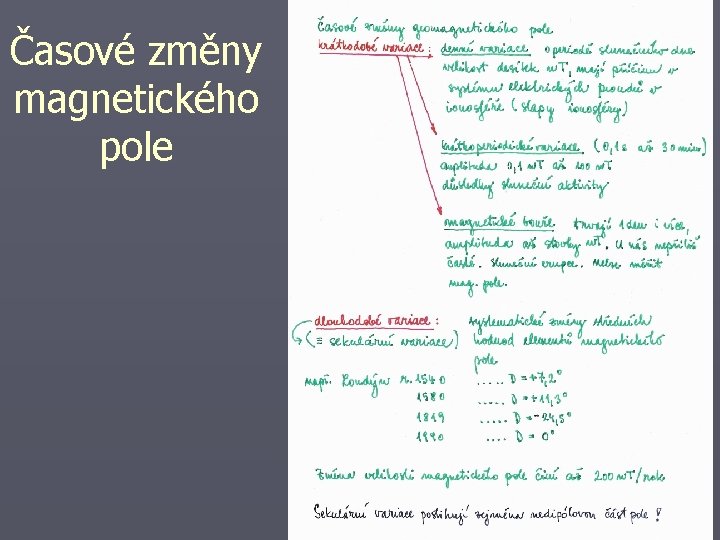 Časové změny
magnetického
pole
Časové změny geomagnetického pole
krátkodobé variace : denní variace o periodě slunečního dne
velikost desítek nT, mají příčinu v
systému elektrických proudů v
ionosféře (slapy ionosféry)
krátkoperiodické variace. (0,1s až 30 min)
amplituda 0,1 nT až 100 nT
důsledky sluneční aktivity
magnetické bouře trvají 1 den i více,
amplituda až stovky nT. U nás nepříliš
časté. sluneční erupce. Nelze měřit
mag. pole.
dlouhodobé variace : systematické změny středních
(≡ sekulární variace) hodnot elementů magnetického
pole
např. Londýn r. 1540 ..... D = +7,2°
1580 ..... D = +11,3°
1819 ..... D = -24,5°
1990 .... D = 0°
Změna velikosti magnetického pole činí až 200 nT/rok
Sekulární variace postihují zejména nedipólovou část pole !